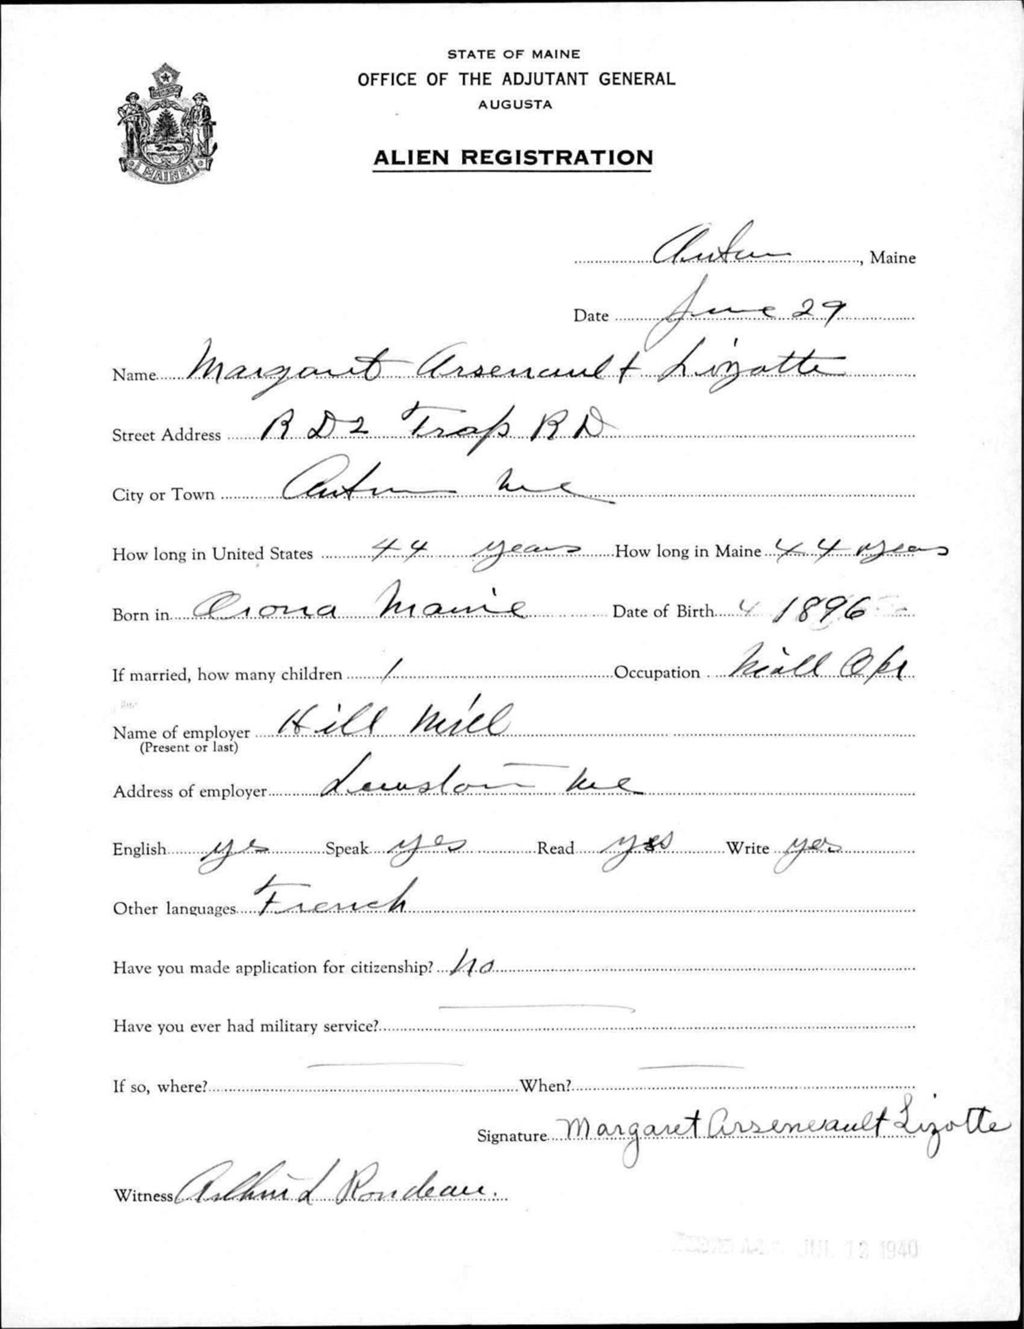 STATE OF MAINE
OFFICE OF THE ADJUTANT GENERAL
AUGUSTA
ALIEN REGISTRATION
MAINE
Auburn, Maine
Date June 29
Name Margaret Arsenault Lizotte
Street Address R D 2 Trap R D
City or Town Auburn Me
How long in United States 44 years How long in Maine 44 years
Born in Orona Maine Date of Birth 4 1896
If married, how many children 1 Occupation Mill Opr
Name of employer Hill Mill
(Present or last)
Address of employer Lewiston Me
English yes Speak yes Read yes Write yes
Other languages French
Have you made application for citizenship? No
Have you ever had military service?
If so, where? When?
Signature Margaret Arseneault Lizotte
Witness Arthur L Rondeau.
JUL 12 1940